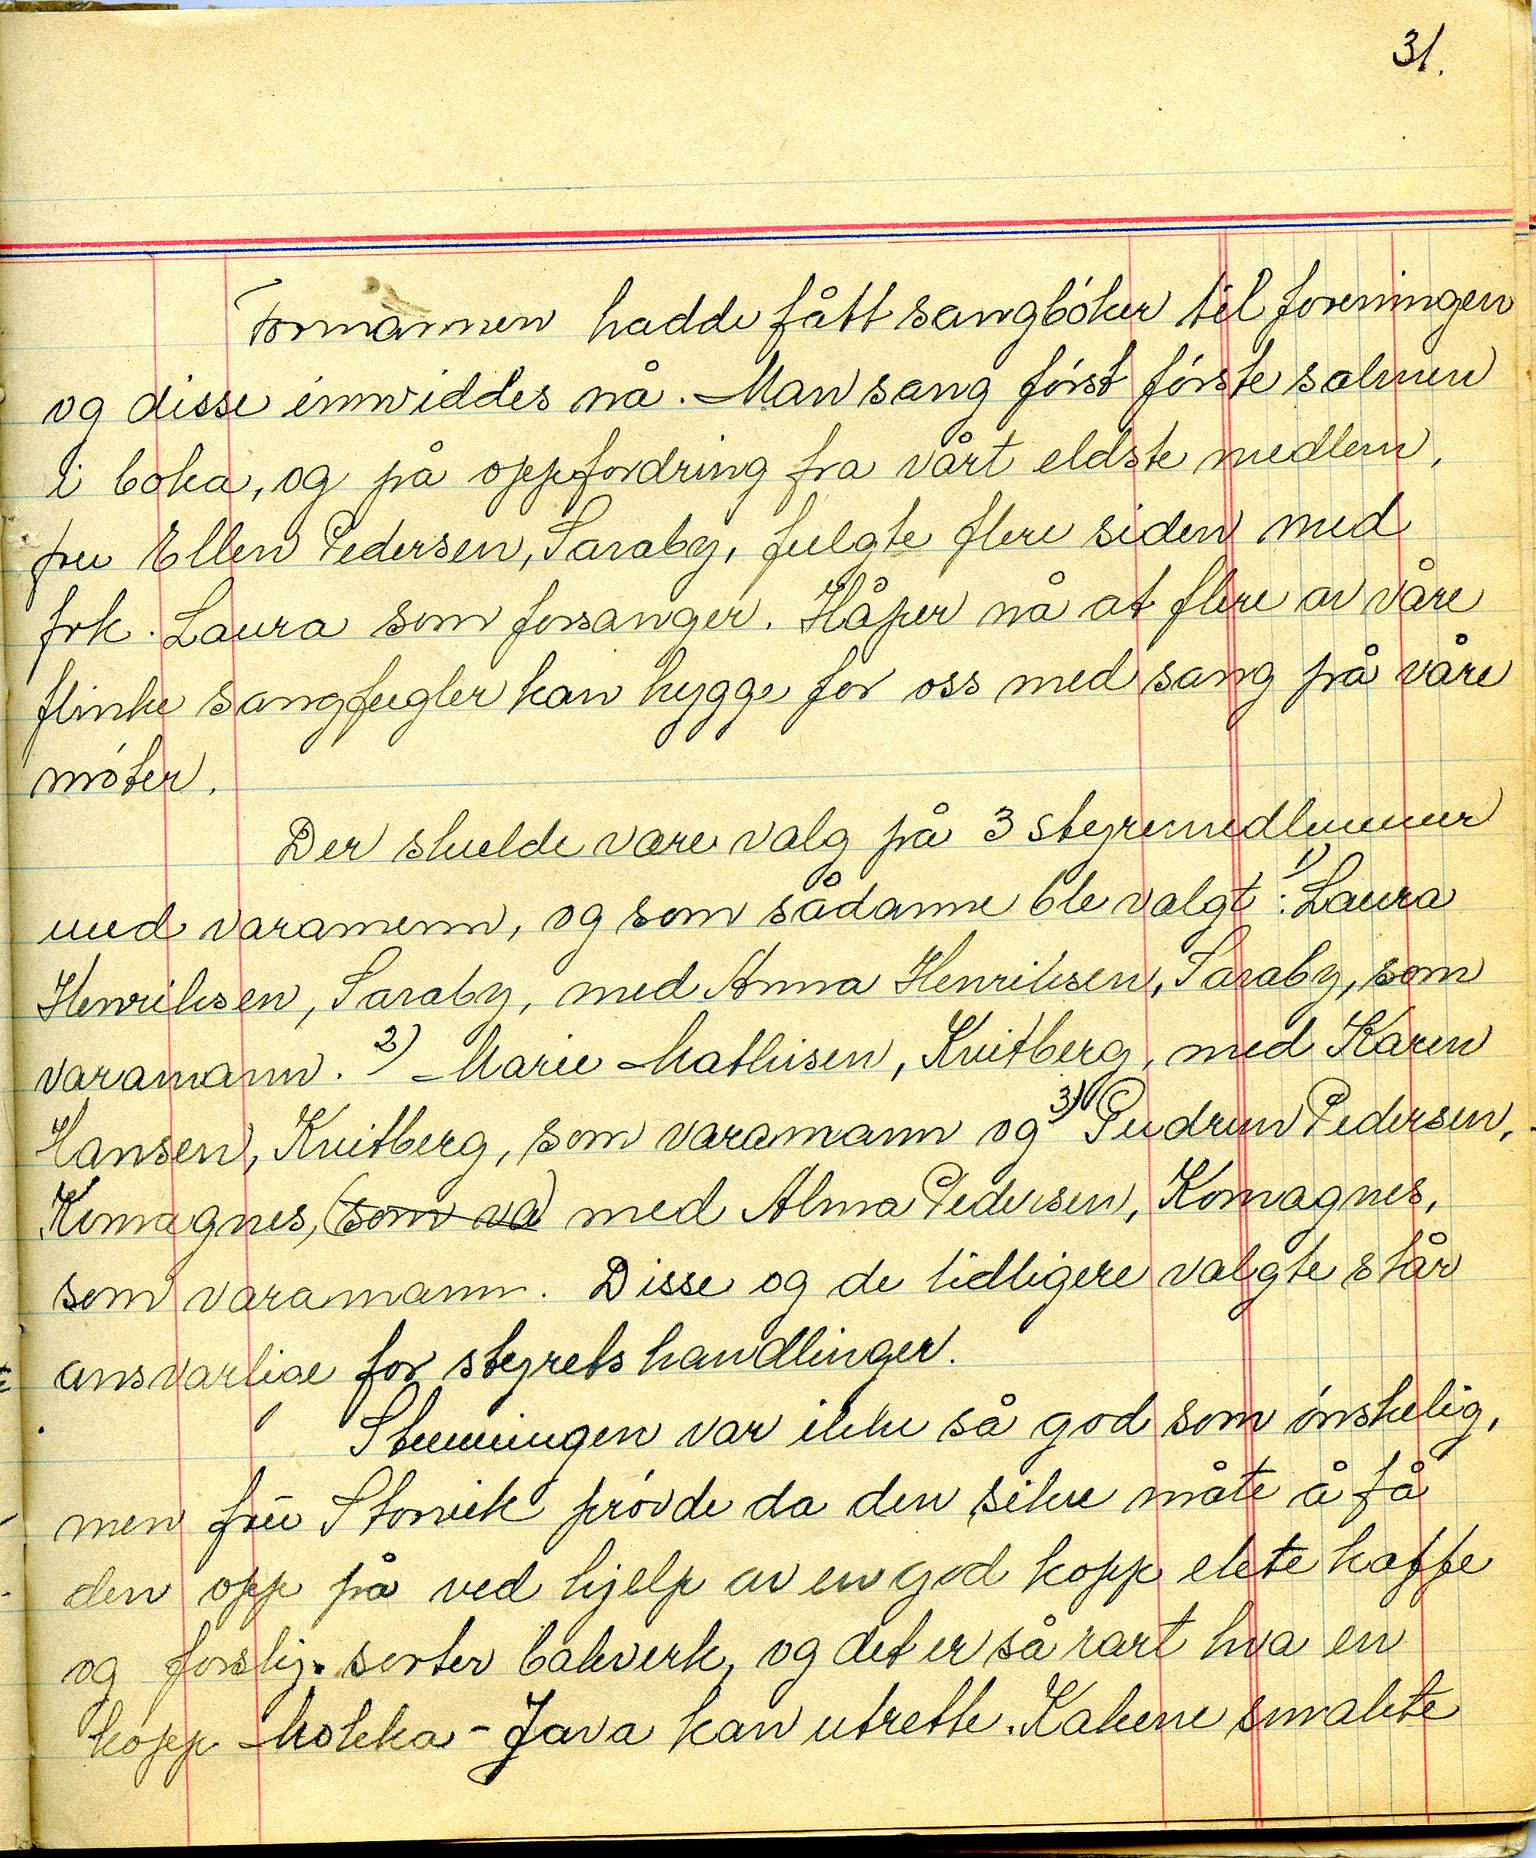 31.
Formannen hadde fått sangbøker til foreningen
og disse innviddes nå. Man sang først første salmen
i boka, og på oppfordring fra vårt eldste medlem,
fru Ellen Pedersen, Saraby, fulgte flere siden med
frk. Laura som forsanger. Håper nå at flere av våre
flinke sangfugler kan hygge for oss med sang på våre
møter.
Der skulde være valg på 3 styremedlemmer
med varamenn, og som sådanne ble valgt: 1) Laura
Henriksen, Saraby, med Anna Henriksen, Saraby, som
varamann. 2) Marie Mathisen, Kvitberg, med Karen
Hansen, Kvitberg, som varamann og 3) Gudrun Pedersen,
Komagnes, (som va) med Alma Pedersen, Komagnes,
som varamann. Disse og de tidligere valgte står
ansvarlige for styrets handlinger.
Stemningen var ikke så god som ønskelig,
men fru Storvik prøvde da den sikre måte å få
den opp på ved hjelp av en god kopp ekte kaffe
og forskj. sorter bakverk, og det er så rart hva en
kopp Mokka-Java kan utrette. Kakene smakte